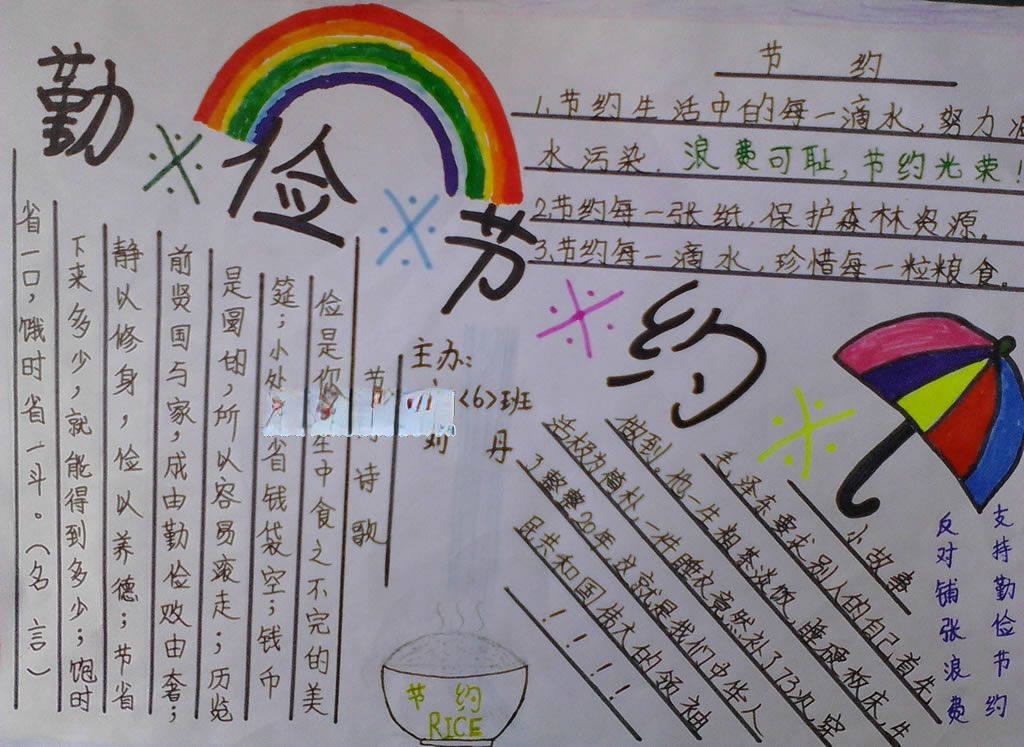 勤俭节约
节约
1.节约生活中的每一滴水,努力
水污染. 浪费可耻,节约光荣!
2.节约每一张纸,保护森林资源。
3.节约每一滴水,珍惜每一粒粮食。
主办:
<6>班
刘 丹
节 诗歌
俭是你 生中食之不完的美
筵;小处 省钱袋空;钱币
是圆的,所以容易滚走;历览
前贤国与家,成由勤俭败由奢;
静以修身,俭以养德;节省
下来多少,就能得到多少;饱时
省一口,饿时省一斗。(名言)
小故事
毛泽东要求别人的自己首先
做到。他一生粗茶淡饭,睡硬板床,生
活极为 朴,一件睡衣竟然补了73次,穿
了整整20年,这就是我们中华人
民共和国伟大的领袖
!!!!
支持勤俭节约
反对铺张浪费
节约
RICE